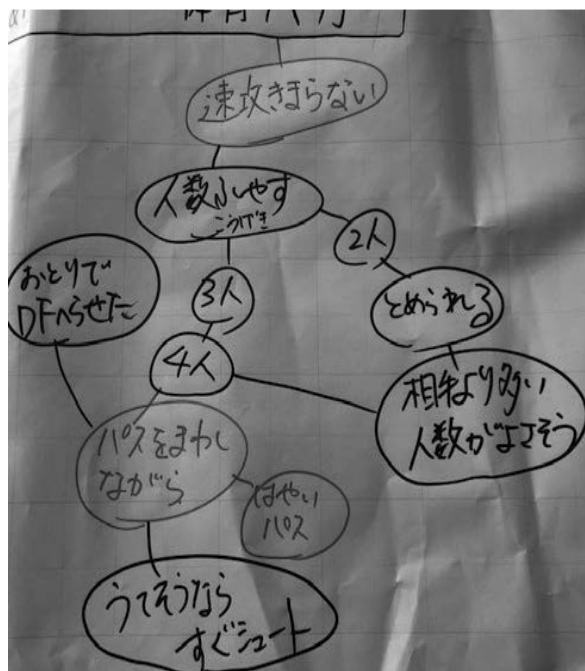 速攻きまらない
人数ふやす
こうげき
2人
おとりで
DFへらせた
3人
とめられる
4人
相手より多い
人数がよさそう
パスをまわし
ながら
はやい
パス
うてそうなら
すぐシュート